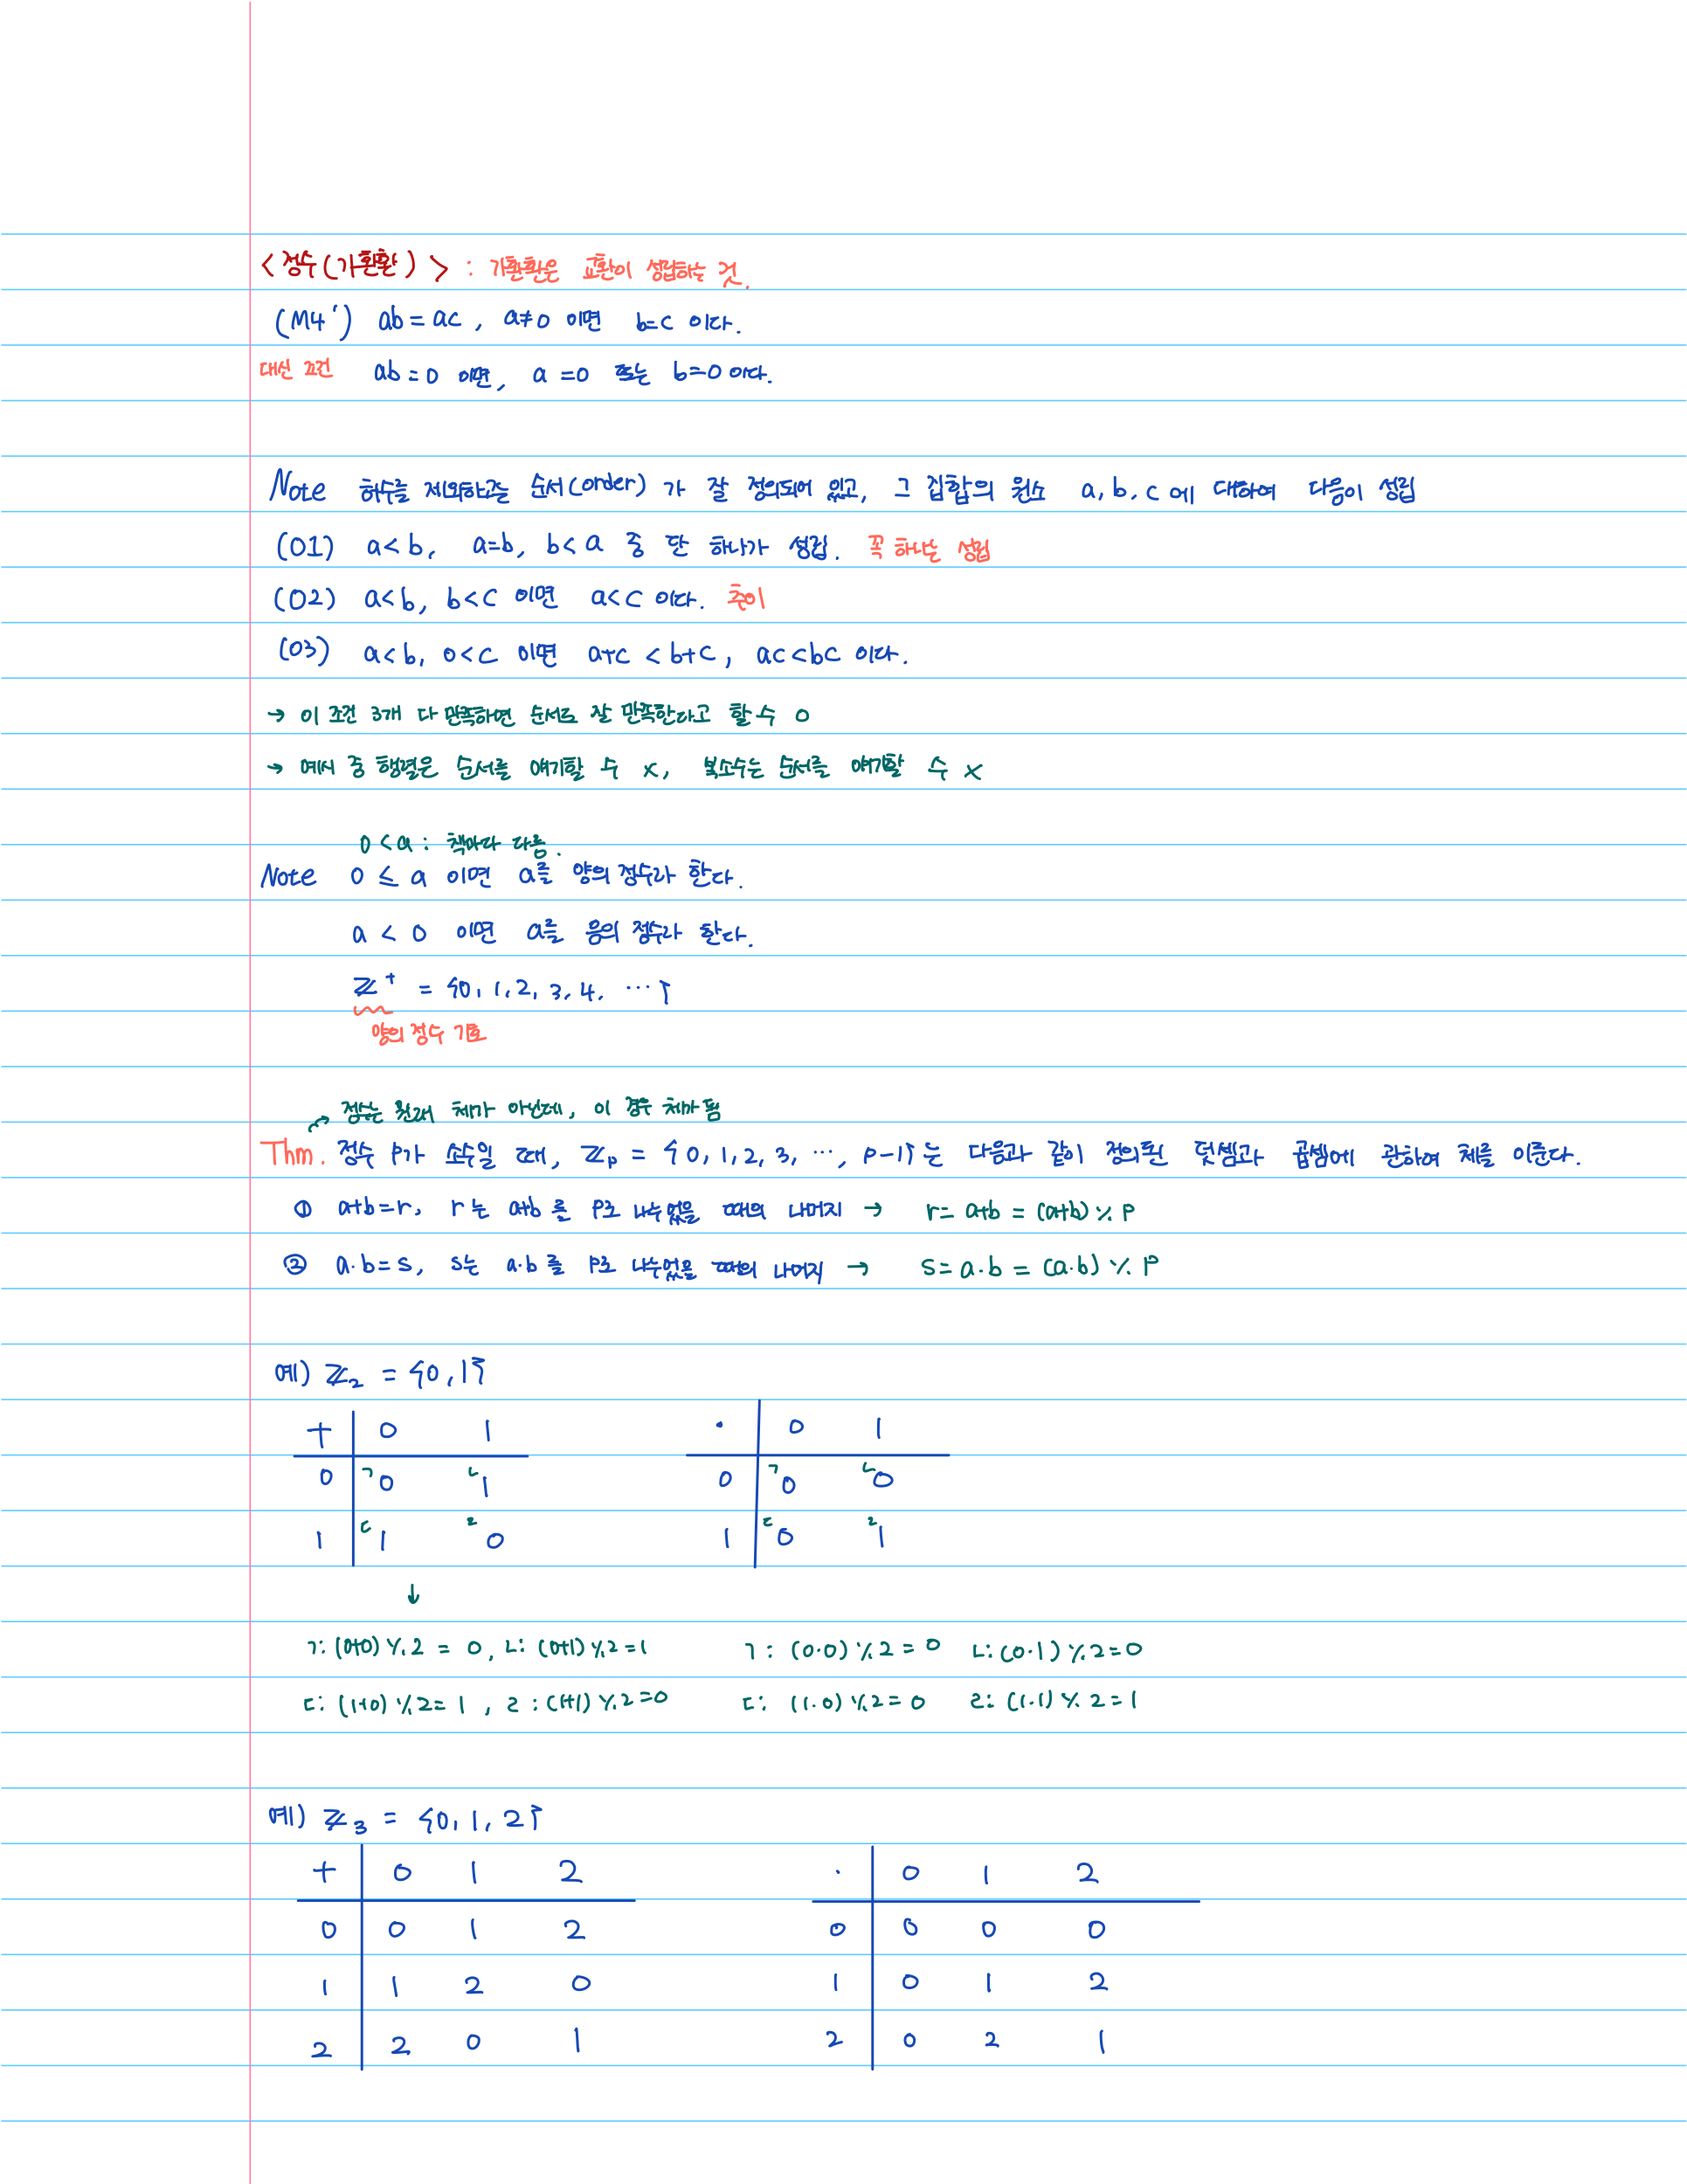 <정수(가환환)> : 가환환은 교환이 성립하는 것.
(M4') ab=ac, a≠0 이면 b=c 이다.
대신 조건 ab=0 이면, a=0 또는 b=0 이다.
Note 허수를 제외하고는 순서(order)가 잘 정의되어 있고, 그 집합의 원소 a,b,c에 대하여 다음이 성립
(O1) a<b, a=b, b<a 중 단 하나가 성립. 꼭 하나는 성립
(O2) a<b, b<c 이면 a<c 이다. 추이
(O3) a<b, 0<c 이면 a+c < b+c, ac<bc 이다.
→ 이 조건 3개 다 만족하면 순서로 잘 만족한다고 할 수 O
→ 예시 중 행렬은 순서를 얘기할 수 X, 복소수는 순서를 얘기할 수 X
0<a : 책마다 다름.
Note 0 ≤ a 이면 a를 양의 정수라 한다.
a < 0 이면 a를 음의 정수라 한다.
ℤ⁺ = {0, 1, 2, 3, 4, ⋯}
양의 정수 기호
→ 정수는 원래 체가 아닌데, 이 경우 체가 됨
Thm. 정수 p가 소수일 때, ℤp = {0, 1, 2, 3, ⋯, p-1}는 다음과 같이 정의된 덧셈과 곱셈에 관하여 체를 이룬다.
① a+b=r, r는 a+b를 p로 나누었을 때의 나머지 → r= a+b = (a+b) % p
② a·b=s, s는 a·b를 p로 나누었을 때의 나머지 → s= a·b = (a·b) % p
예) ℤ₂ = {0, 1}
+ 0 1 · 0 1
0 ㄱ 0 ㄴ 1 0 ㄱ 0 ㄴ 0
1 ㄷ 1 ㄹ 0 1 ㄷ 0 ㄹ 1
↓
ㄱ: (0+0) % 2 = 0, ㄴ: (0+1) % 2 = 1 ㄱ: (0·0) % 2 = 0 ㄴ: (0·1) % 2 = 0
ㄷ: (1+0) % 2 = 1, ㄹ: (1+1) % 2 = 0 ㄷ: (1·0) % 2 = 0 ㄹ: (1·1) % 2 = 1
예) ℤ₃ = {0, 1, 2}
+ 0 1 2 · 0 1 2
0 0 1 2 0 0 0 0
1 1 2 0 1 0 1 2
2 2 0 1 2 0 2 1